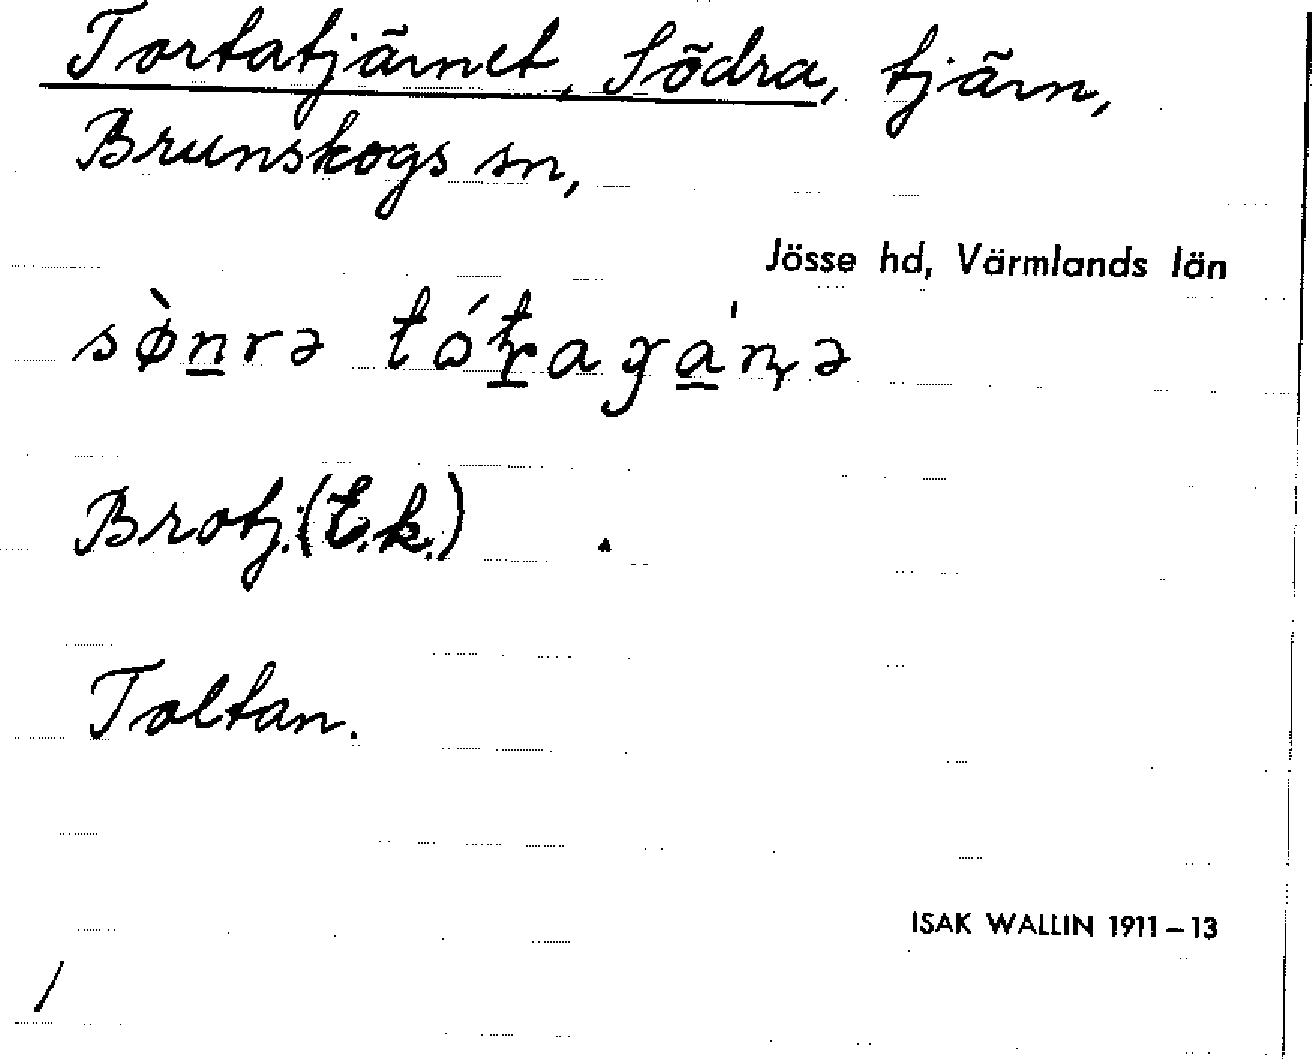 Tortatjärnet, Södra, tjärn,
Brunskogs sn,
Jösse hd, Värmlands län
Brotj. (E.k.)
Toltan.
ISAK WALLIN 1911–13
/